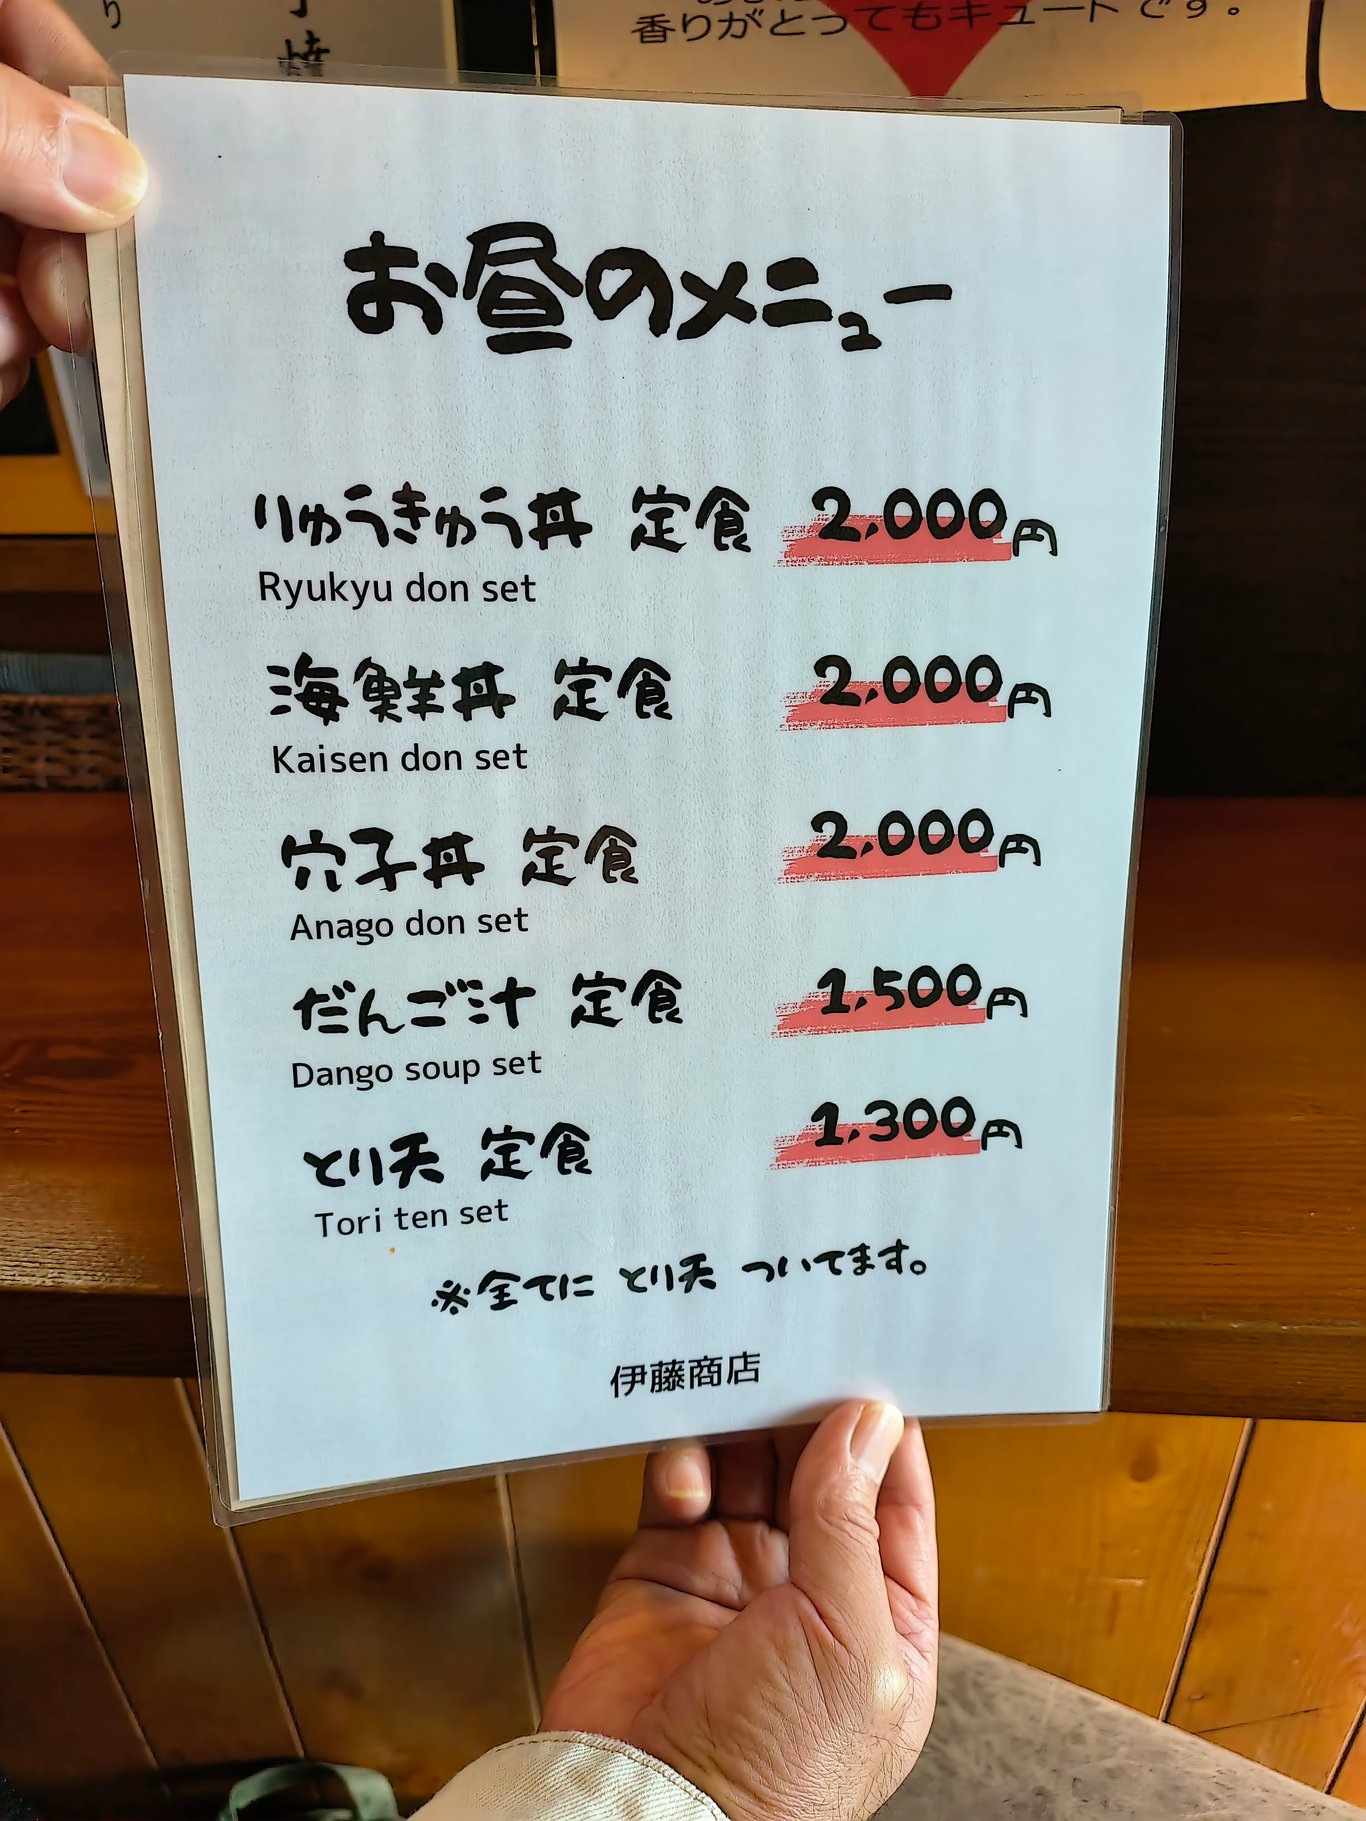 香りがとってもキュートです。
お昼のメニュー
りゅうきゅう丼 定食 2,000円
Ryukyu don set
海鮮丼 定食 2,000円
Kaisen don set
穴子丼 定食 2,000円
Anago don set
だんご汁 定食 1,500円
Dango soup set
とり天 定食 1,300円
Tori ten set
※全てに とり天 ついてます。
伊藤商店